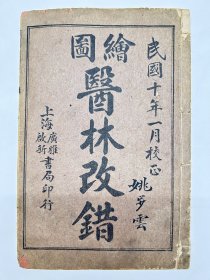 繪圖
民國十年一月校正
姚步雲
醫林改錯
上海廣雅啟新書局印行